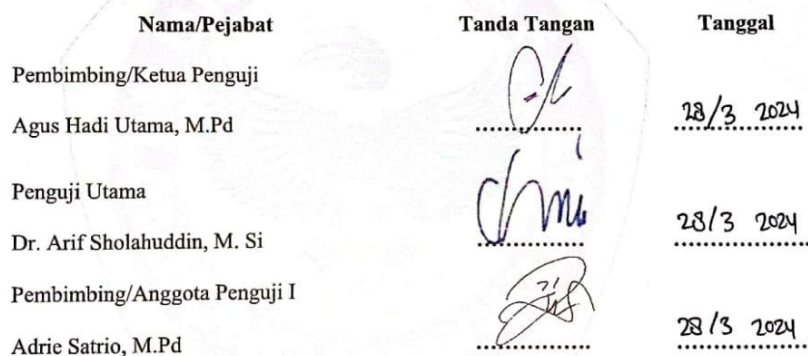 Nama/Pejabat Tanda Tangan Tanggal
Pembimbing/Ketua Penguji
Agus Hadi Utama, M.Pd 28/3 2024
Penguji Utama
Dr. Arif Sholahuddin, M. Si 28/3 2024
Pembimbing/Anggota Penguji I
Adrie Satrio, M.Pd 28/3 2024